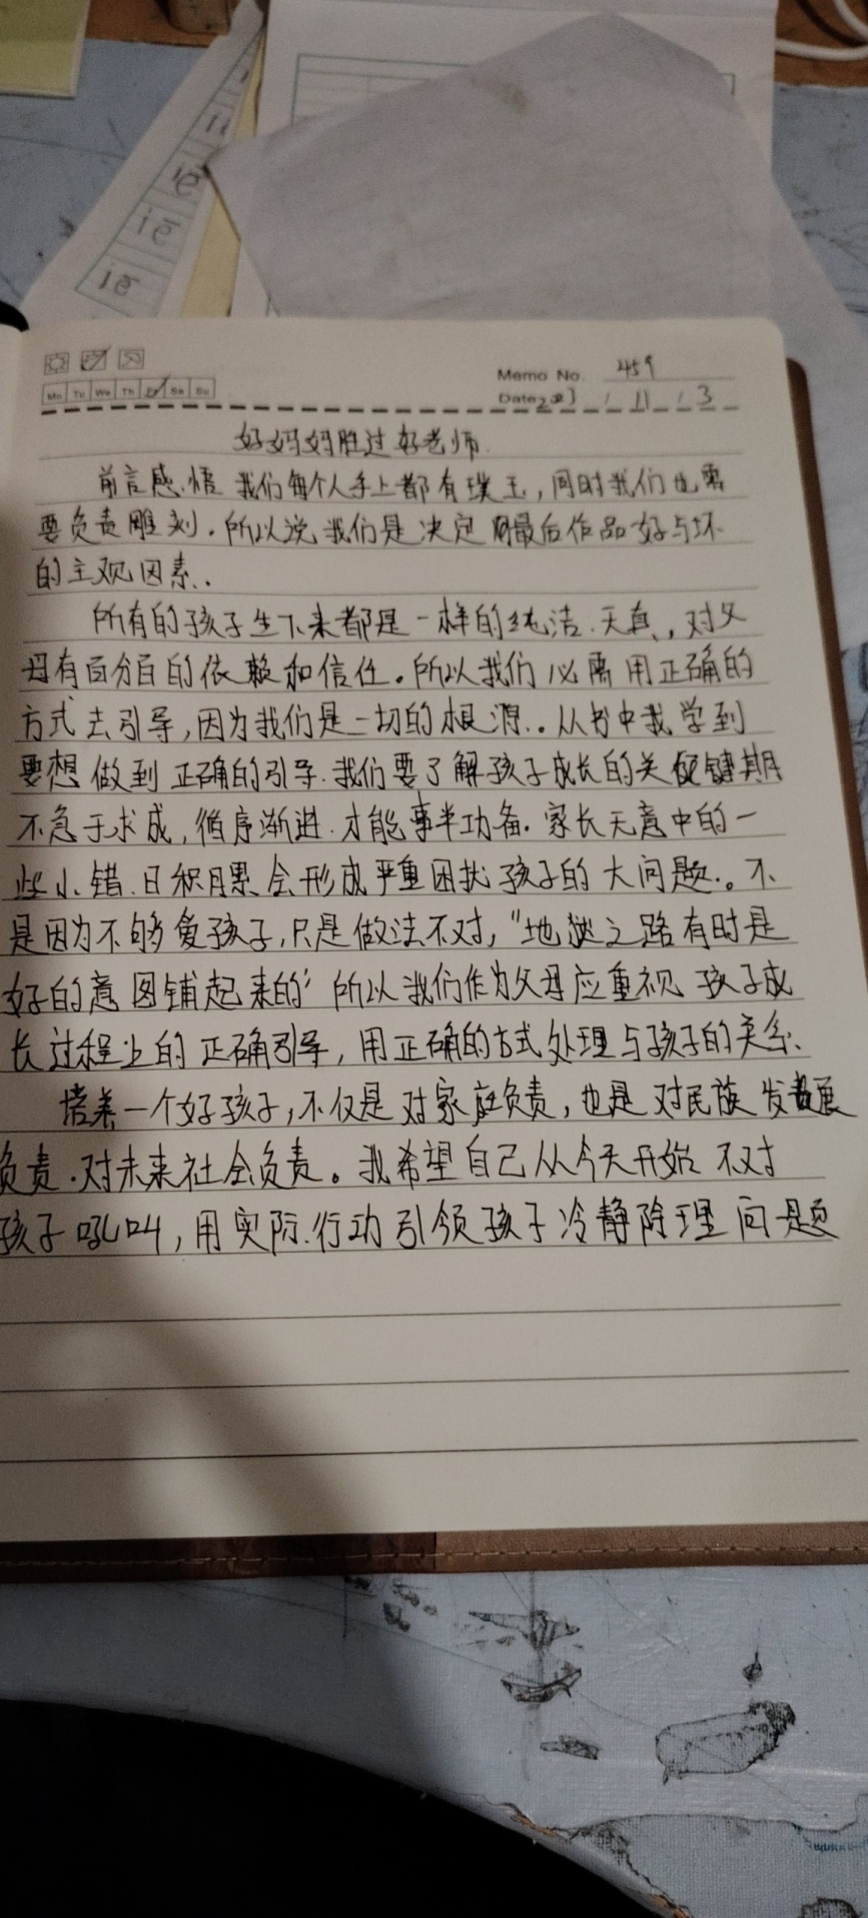 Mo Tu We Th Fr Sa Su
Memo No. 459
Date 11 3
好妈妈胜过好老师.
前言感悟 我们每个人手上都有璞玉,同时我们也需
要负责雕刻.所以说我们是决定最后作品好与坏
的主观因素.
所有的孩子生下来都是一样的纯洁.天真,对父
母有百分百的依赖和信任。所以我们必需用正确的
方式去引导,因为我们是一切的根源.从书中我学到
要想做到正确的引导.我们要了解孩子成长的关键期
不急于求成,循序渐进.才能事半功备.家长无意中的一
些小错.日积月累会形成严重困扰孩子的大问题。不
是因为不够爱孩子,只是做法不对,"地狱之路有时是
好的意图铺起来的"所以我们作为父母应重视孩子成
长过程上的正确引导,用正确的方式处理与孩子的关系.
培养一个好孩子,不仅是对家庭负责,也是对民族发展
负责.对未来社会负责。我希望自己从今天开始不对
孩子吼叫,用实际行动引领孩子冷静除理问题